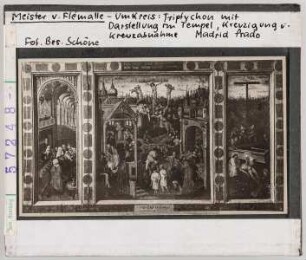 Meister v. Flémalle - Umkreis: Triptychon mit
Darstellung im Tempel, Kreuzigung u.
Kreuzabnahme Madrid Prado
Fot. Bes. Schöne
57248